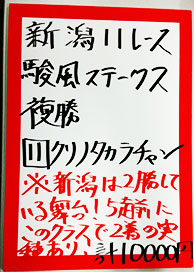 新潟11レース
駿風ステークス
複勝
⑪クリノタカラチャン
※新潟は2勝して
いる舞台!5走前に
このクラスで2番の実
績あり! 計10000円